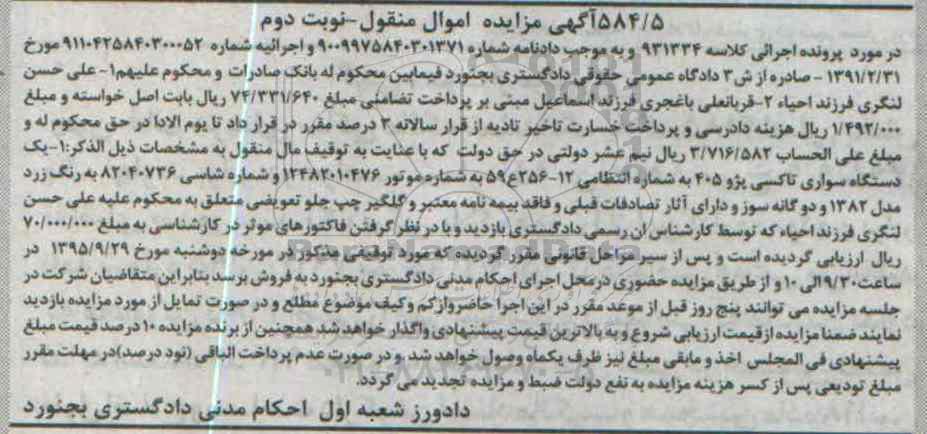 ۵۸۴/۵آگهی مزایده اموال منقول-نوبت دوم
در مورد پرونده اجرائی کلاسه ۹۳۱۳۳۴ و به موجب دادنامه شماره ۹۰۰۹۹۷۵۸۴۰۳۰۱۳۷۱ و اجرائیه شماره ۹۱۱۰۴۲۵۸۴۰۳۰۰۰۵۲ مورخ
۱۳۹۱/۲/۳۱ - صادره از ش۳ دادگاه عمومی حقوقی دادگستری بجنورد فیمابین محکوم له بانک صادرات و محکوم علیهم۱- علی حسن
لنگری فرزند احیاء ۲-قربانعلی باغجری فرزند اسماعیل مبنی بر پرداخت تضامنی مبلغ ۷۴/۳۳۱/۶۴۰ ریال بابت اصل خواسته و مبلغ
۱/۴۹۲/۰۰۰ ریال هزینه دادرسی و پرداخت خسارت تاخیر تادیه از قرار سالانه ۳ درصد مقرر در قرار داد تا یوم الادا در حق محکوم له و
مبلغ علی الحساب ۳/۷۱۶/۵۸۲ ریال نیم عشر دولتی در حق دولت که با عنایت به توقیف مال منقول به مشخصات ذیل الذکر:۱-یک
دستگاه سواری تاکسی پژو ۴۰۵ به شماره انتظامی ۱۲-۲۵۶ع۵۹ به شماره موتور ۱۲۴۸۲۰۱۰۴۷۶ و شماره شاسی ۸۲۰۴۰۷۳۶ به رنگ زرد
مدل ۱۳۸۲ و دو گانه سوز و دارای آثار تصادفات قبلی و فاقد بیمه نامه معتبر و گلگیر چپ جلو تعویضی متعلق به محکوم علیه علی حسن
لنگری فرزند احیاء که توسط کارشناس ان رسمی دادگستری بازدید و با در نظر گرفتن فاکتورهای موثر در کارشناسی به مبلغ ۷۰/۰۰۰/۰۰۰
ریال ارزیابی گردیده است و پس از سیر مراحل قانونی مقرر گردیده که مورد توقیفی مذکور در مورخه دوشنبه مورخ ۱۳۹۵/۹/۲۹ در
ساعت۹/۳۰الی ۱۰ و از طریق مزایده حضوری درمحل اجرای احکام مدنی دادگستری بجنورد به فروش برسد بنابراین متقاضیان شرکت در
جلسه مزایده می توانند پنج روز قبل از موعد مقرر در این اجرا حاضر و از کم وکیف موضوع مطلع و در صورت تمایل از مورد مزایده بازدید
نمایند ضمنا مزایده از قیمت ارزیابی شروع و به بالاترین قیمت پیشنهادی واگذار خواهد شد همچنین از برنده مزایده ۱۰ درصد قیمت مبلغ
پیشنهادی فی المجلس اخذ و مابقی مبلغ نیز ظرف یکماه وصول خواهد شد .و در صورت عدم پرداخت الباقی (نود درصد)در مهلت مقرر
مبلغ تودیعی پس از کسر هزینه مزایده به نفع دولت ضبط و مزایده تجدید می گردد.
دادورز شعبه اول احکام مدنی دادگستری بجنورد